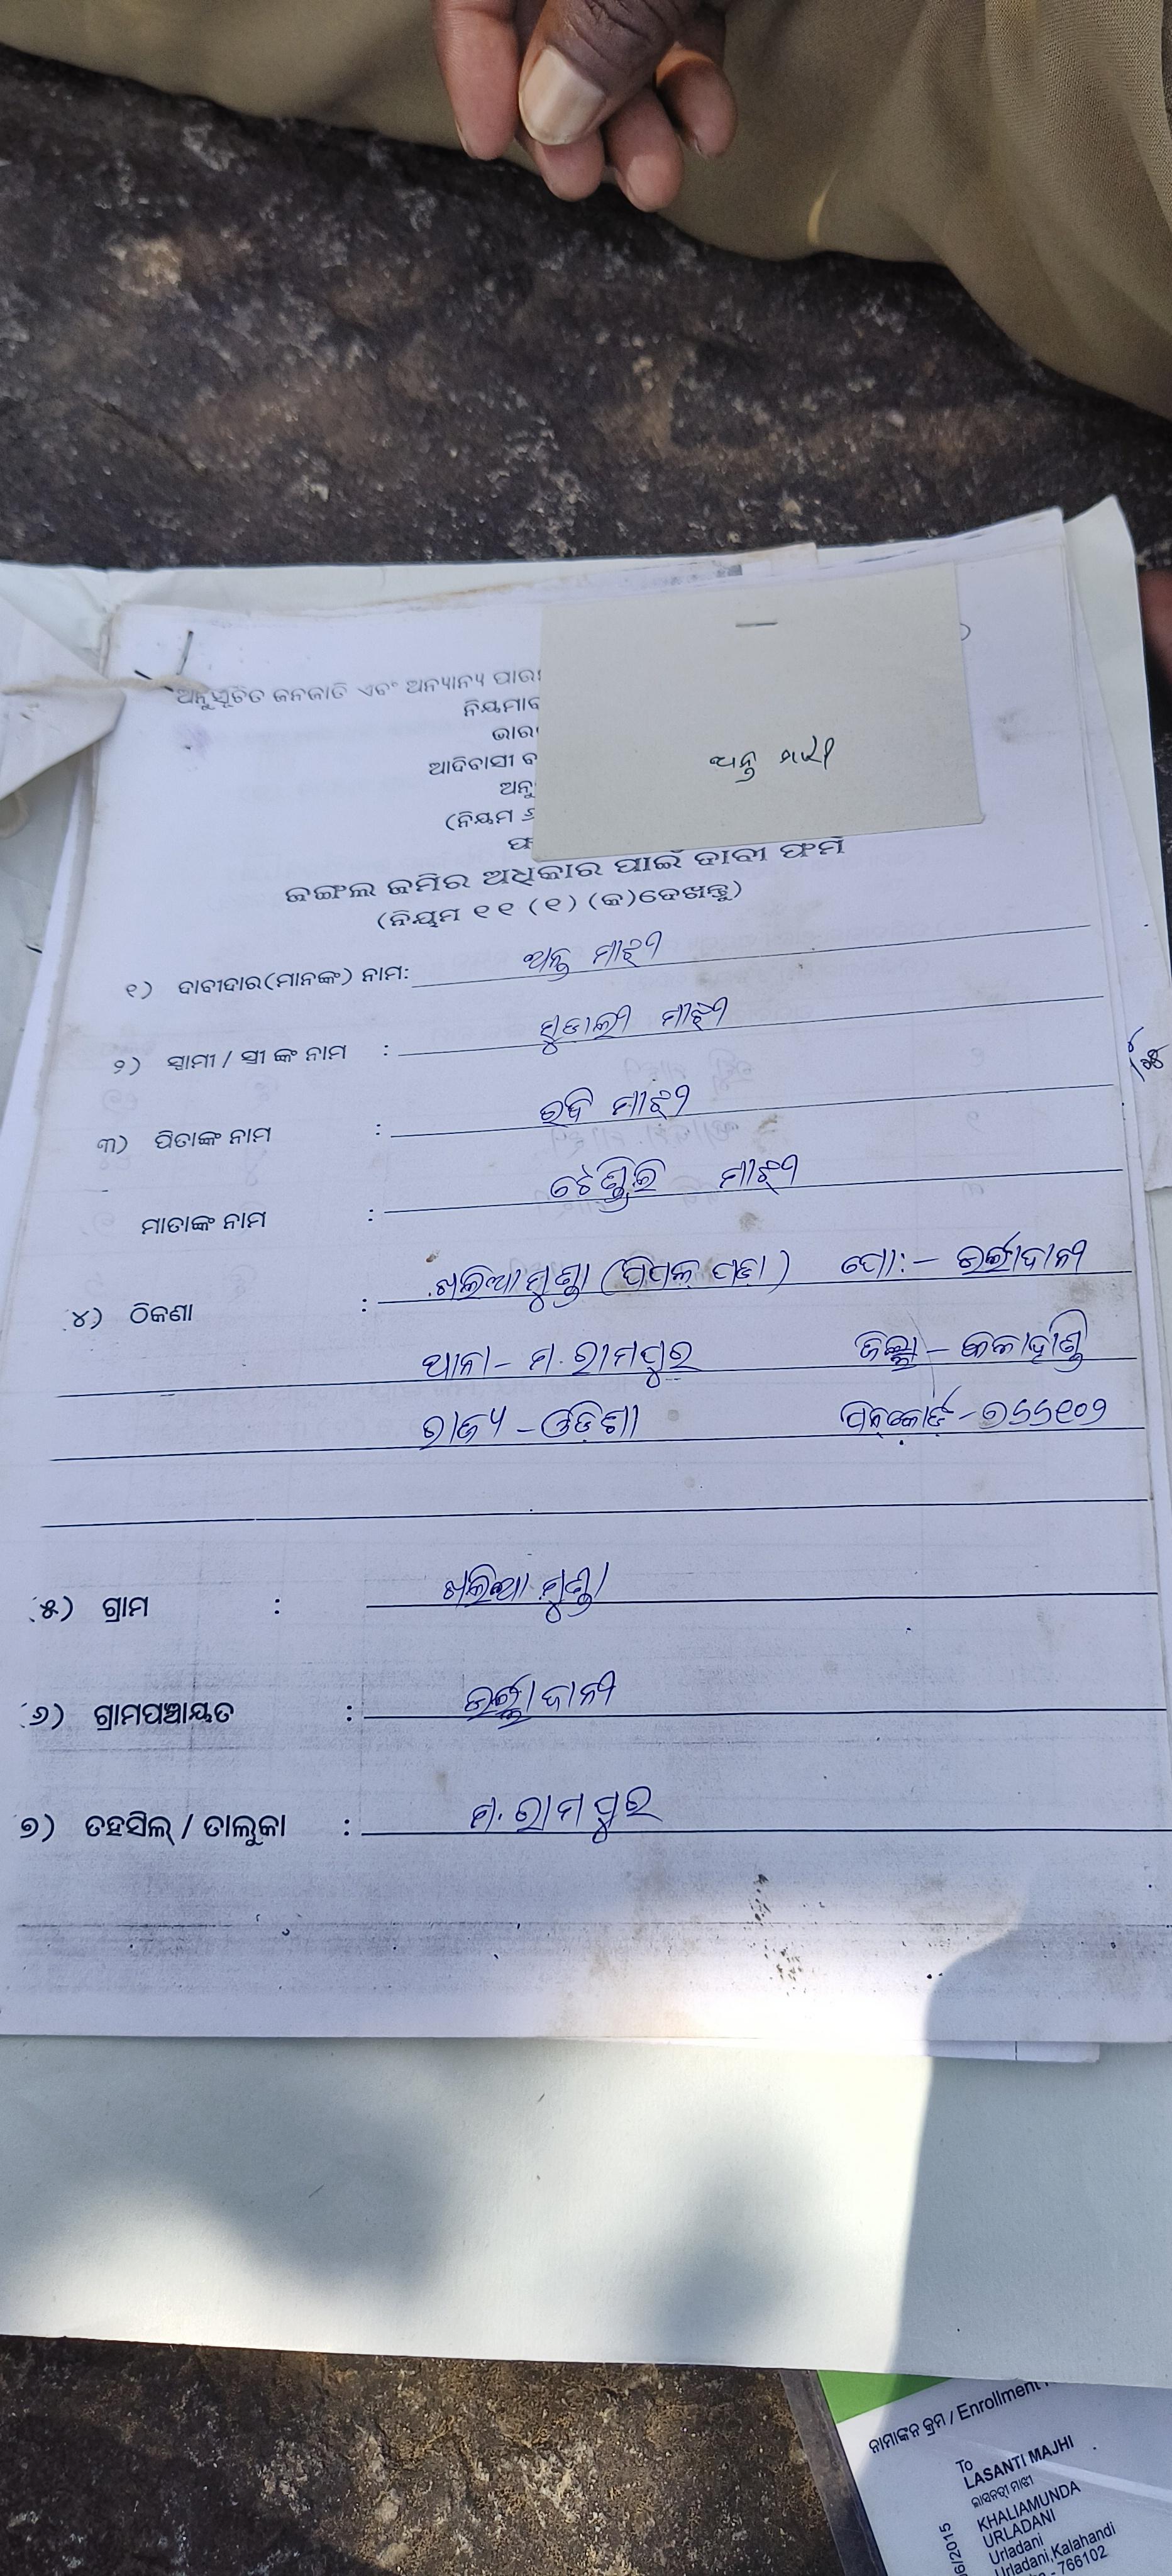 ଅନୁସୂଚିତ ଜନଜାତି ଏବଂ ଅନ୍ୟାନ୍ୟ ପାର
ନିୟମାବ
ଭାର
ଆଦିବାସୀ ବ
ଅନୁ
(ନିୟମ ୬
ଫ
ଅନ୍ତୁ ମାଝୀ
ଜଙ୍ଗଲ ଜମିର ଅଧିକାର ପାଇଁ ଦାବୀ ଫର୍ମ
(ନିୟମ ୧୧ (୧) (କ)ଦେଖନ୍ତୁ)
୧) ଦାବୀଦାର(ମାନଙ୍କ) ନାମ: ଅନ୍ତୁ ମାଝୀ
୨) ସ୍ବାମୀ / ସ୍ତ୍ରୀ ଙ୍କ ନାମ : ସୁଡାଲୀ ମାଝୀ
୩) ପିତାଙ୍କ ନାମ : ରବି ମାଝୀ
ମାତାଙ୍କ ନାମ : ମାଝୀ
୪) ଠିକଣା : ଖଲିଆମୁଣ୍ଡା (ପିପଲ୍ ପଡା) ପୋ:- ଉର୍ଲାଦାନୀ
ଥାନା- ମ. ରାମପୁର ଜିଲ୍ଲା - କଳାହାଣ୍ଡି
ରାଜ୍ୟ - ଓଡ଼ିଶା ପିନ୍‌କୋଡ଼ - ୭୬୬୧୦୨
୫) ଗ୍ରାମ : ଖଲିଆମୁଣ୍ଡା
୬) ଗ୍ରାମପଞ୍ଚାୟତ : ଉର୍ଲାଦାନୀ
୭) ତହସିଲ୍ / ତାଲୁକା : ମ. ରାମପୁର
ନାମାଙ୍କନ କ୍ରମ / Enrollment
To
LASANTI MAJHI
KHALIAMUNDA
URLADANI
Urladani
Urladani,Kalahandi
- 766102
6/2015